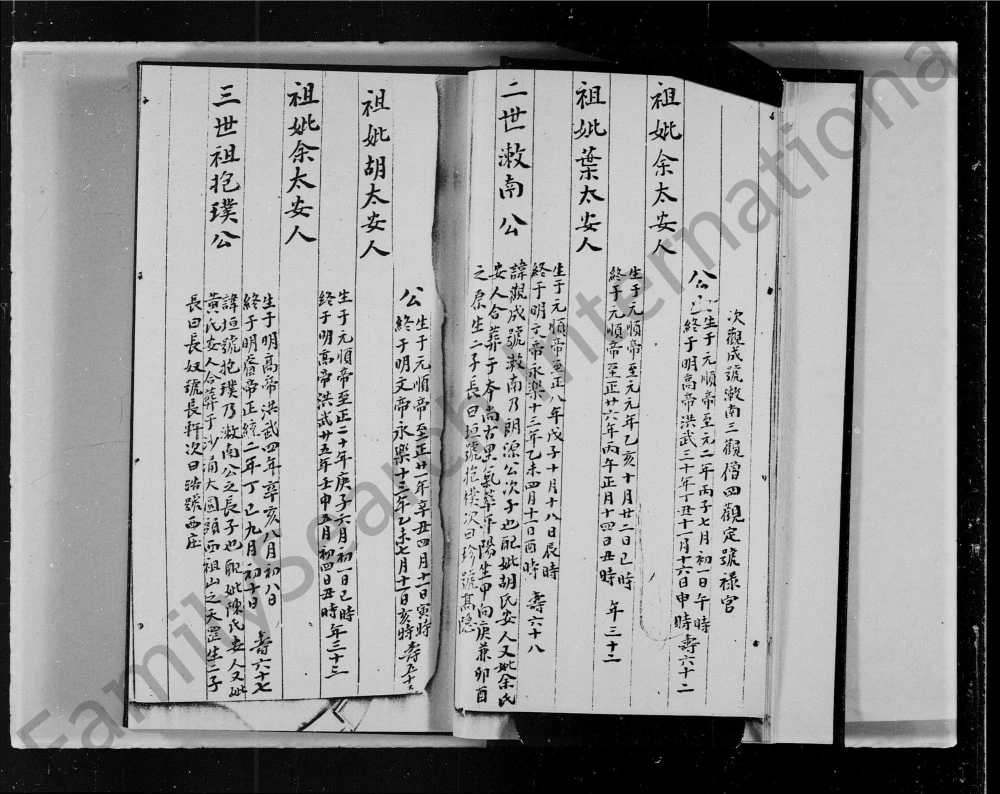 次觀成號漖南三觀僧四觀定號祿官
祖妣余太安人
公
生于元順帝至元二年丙子七月初一日午時
終于明高帝洪武三十年丁丑十一月十六日申時 壽六十二
祖妣葉太安人
生于元順帝至元元年乙亥十月廿二日巳時
終于元順帝至正廿六年丙午正月十四日丑時 年三十二
二世漖南公
生于元順帝至正八年戊子十月十八日辰時
終于明文帝永樂十三年乙未四月十一日酉時 壽六十八
諱觀成號漖南乃朗源公次子也配妣胡氏安人又妣余氏
安人合葬于本尚古里氣草坪陽坐甲向庚兼卯酉
之原生二子長曰垣號抱璞次曰珍號高隱
祖妣胡太安人
公
生于元順帝至正廿一年辛丑四月十一日寅時
終于明文帝永樂十三年乙未七月十一日亥時 壽五十
祖妣余太安人
生于元順帝至正二十年庚子六月初一日巳時
終于明高帝洪武廿五年壬申五月初四日丑時 年三十三
三世祖抱璞公
生于明高帝洪武四年辛亥八月初八日
終于明睿帝正統二年丁巳九月初十日 壽六十七
諱垣號抱璞乃漖南公之長子也配妣陳氏安人又妣
黃氏安人合葬于沙涌大圓頭西祖山之天罡生二子
長曰長奴號長軒次曰浩號西庄
FamilySearch International